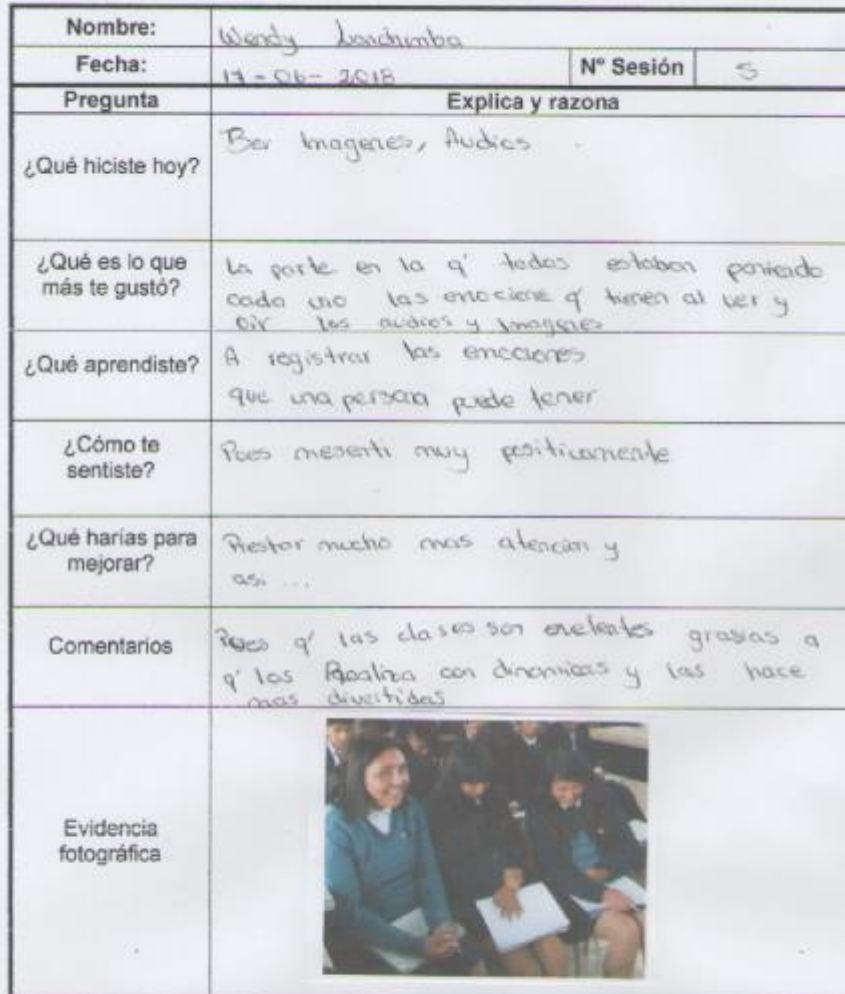 Nombre: Wendy Lanchimba
Fecha: 17-06-2018 Nº Sesión 5
Pregunta Explica y razona
¿Qué hiciste hoy?
Ber Imagenes, Audios.
¿Qué es lo que
más te gustó?
La parte en la q' todos estaban poniendo
cada uno las emocione q' tienen al ver y
oir los audios y Imagenes
¿Qué aprendiste?
A registrar las emociones
que una persona puede tener
¿Cómo te
sentiste?
Pues mesenti muy positivamente
¿Qué harías para
mejorar?
Prestar mucho mas atencion y
asi ...
Comentarios
Pues q' las clases son exelentes grasias a
q' los Realiza con dinamicas y las hace
mas divertidas
Evidencia
fotográfica